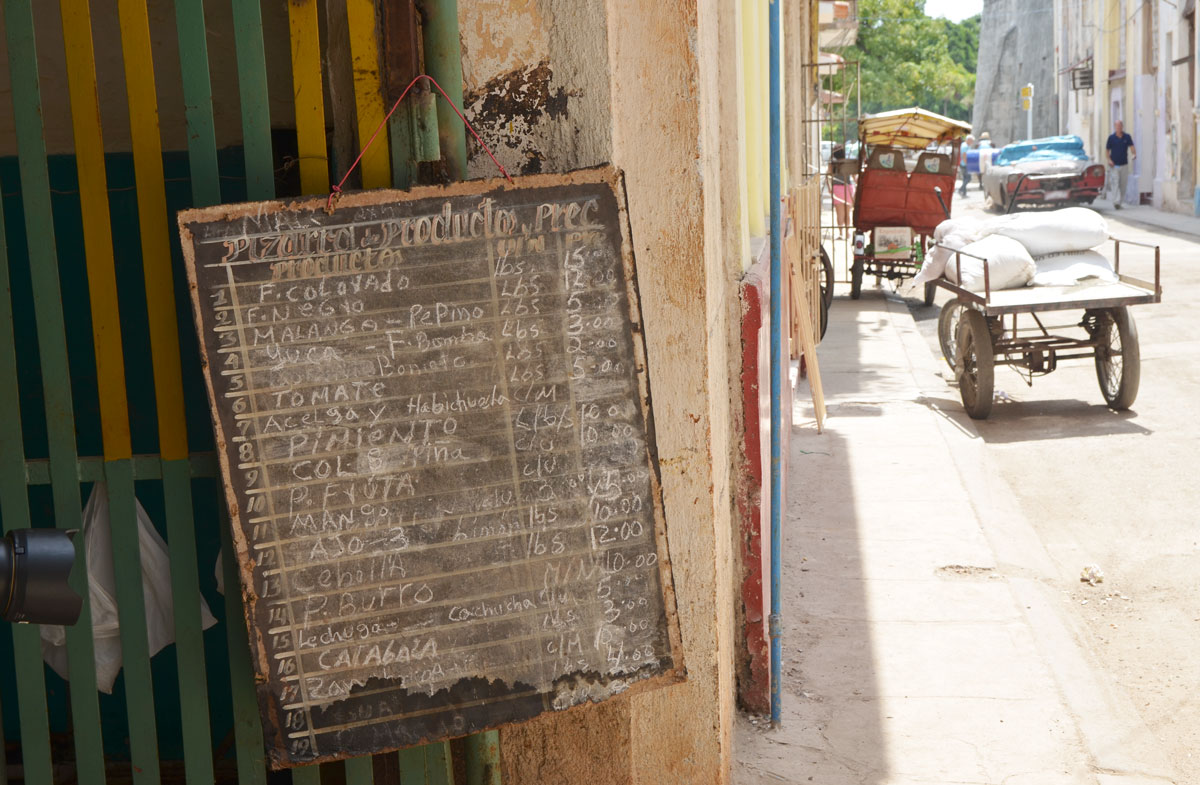 Pizarra de Producto y Prec
Producto U/M
1 F. COLORADO Lbs 15.00
2 F. NEGRO Lbs 12.00
3 MALANGA - PEPINO Lbs 5.00
4 YUCA - F. Bomba Lbs 3.00
5 Boniato Lbs 2.00
6 TOMATE Lbs 5.00
7 Acelga y Habichuela C/M
8 PIMIENTO 10.00
9 COL Piña C/U 10.00
10 P. FRUTA C/U
11 MANGO
12 AJO - 3 Limon lbs 10.00
13 Cebolla lbs 12.00
14 P. BURRO M/N 10.00
15 Lechuga - cachucha 5.00
16 CALABAZA lbs 3.00
17 C/M
18 lbs 4.00
19